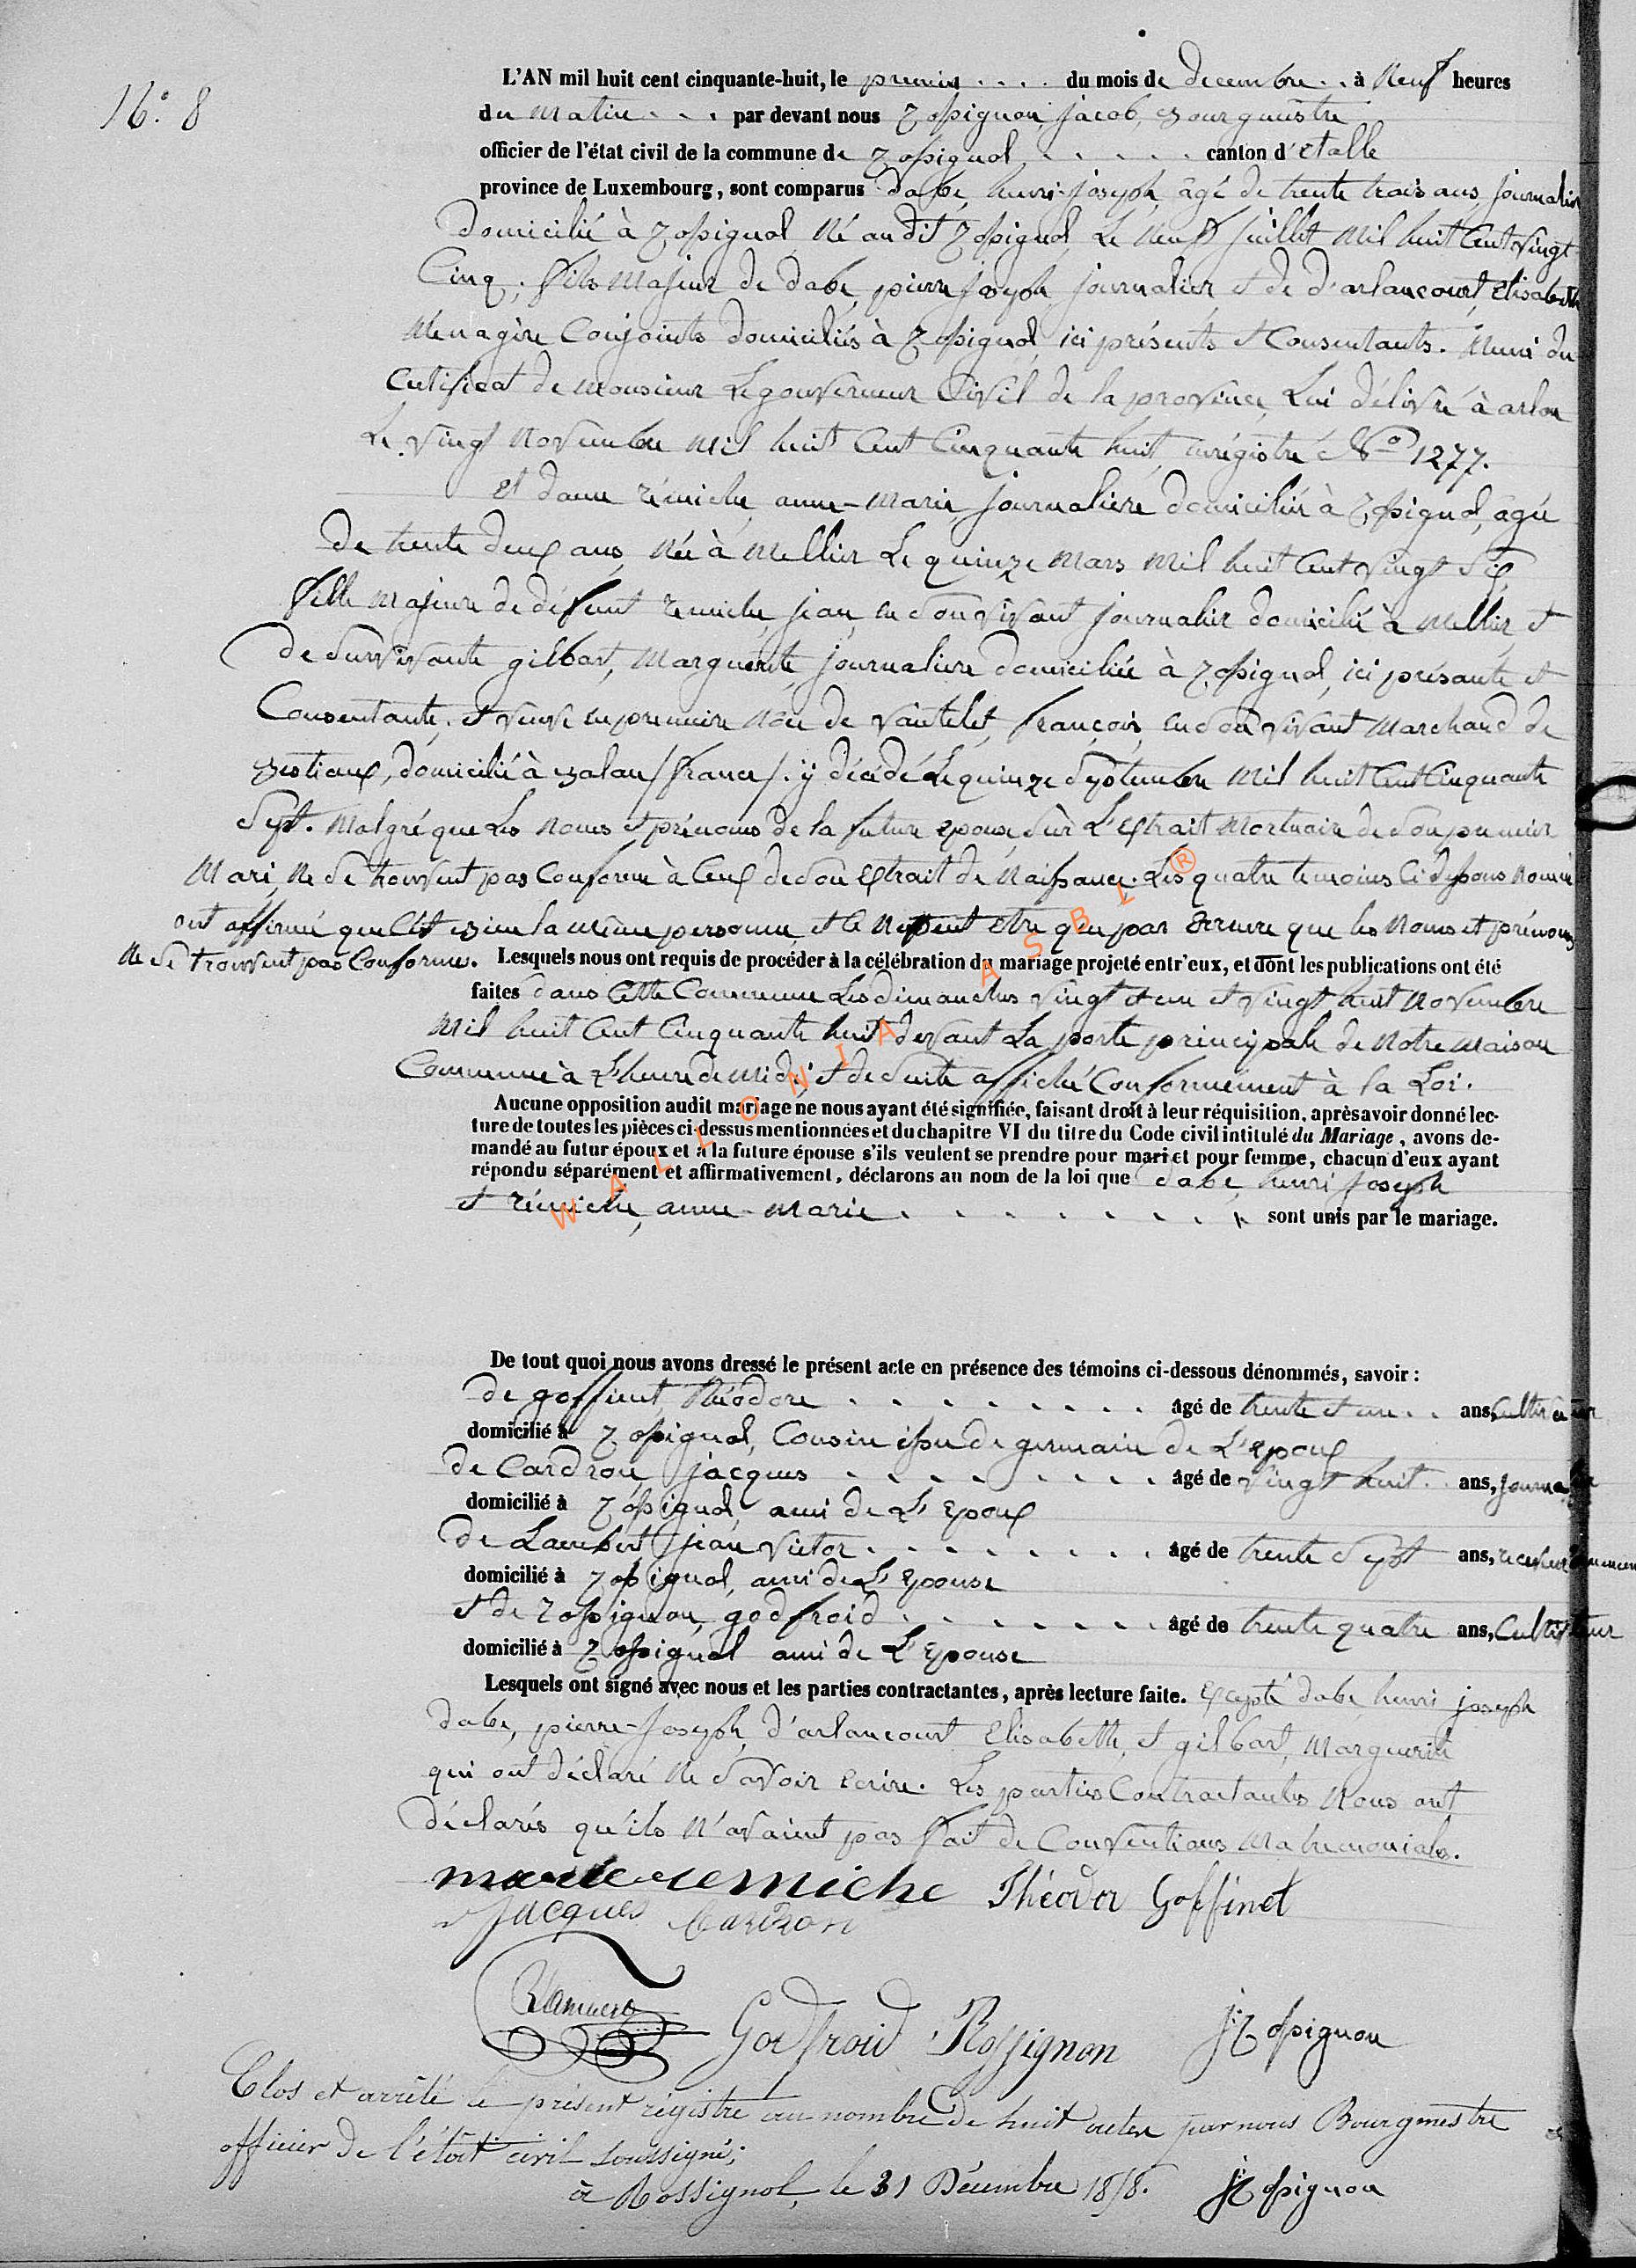 N°. 8
L'AN mil huit cent cinquante-huit, le premier . . . . du mois de decembre . . à Neuf heures
du Matin . . . par devant nous Rossignon, jacob, Bourgmestre
officier de l'état civil de la commune de Rossignol . . . . . canton d'Etalle
province de Luxembourg, sont comparus dabe, henri-joseph, âgé de trente trois ans, journalier
Domicilié à Rossignol Né au dit Rossignol, Le Neuf juillet Mil huit Cent vingt
Cinq; fils Majeur de dabe, pierre joseph, journalier et de d'arlancourt, Elisabeth
Menagère Conjoints domiciliés à Rossignol, ici présents et Consentants. Muni du
Certificat de Monsieur Le gouverneur Civil de la province, Lui délivré à arlon
Le vingt Novembre Mil huit Cent Cinquante huit, enrégistré N° 1277.
Et dame rémiche, anne-Marie, journalière domiciliée à Rossignol, agée
de trente deux ans, Née à Mellier Le quinze Mars Mil huit Cent vingt Six,
fille Majeure de défunt remiche, jean, en Son vivant journalier domicilié à Mellier, et
de Survivante gilbart, Marguerite, journalière domiciliée à Rossignol, ici présante et
Consentante, et veuve en premiere Noce de vautelet, françois, en Son vivant Marchand de
Bestiaux, domicilié à Balan /france/. ÿ décédé Le quinze Septembre Mil huit Cent Cinquante
Sept. Malgré que Les Noms et prénoms de la future epouse, Sur L'Extrait Mortuaire de Son premier
Mari, Ne Se trouvent pas Conforme à Ceux de Son Extrait de Naissance. Les quatre temoins Ci dessous Nommé
ont affirmé que C'est Bien la même personne, et Ce Ne peut etre que par Erreure que les Noms et prénoms
Ne Se trouvent pas Conforme. Lesquels nous ont requis de procéder à la célébration du mariage projeté entr'eux, et dont les publications ont été
faites dans Cette Commune Les dimanches vingt et un et vingt huit Novembre
Mil huit Cent Cinquante huit devant La porte principale de Notre Maison
Commune à L'heure de Midi, et de Suite affiché Conformément à la Loi.
Aucune opposition audit mariage ne nous ayant été signifiée, faisant droit à leur réquisition, après avoir donné lec-
ture de toutes les pièces ci-dessus mentionnées et du chapitre VI du titre du Code civil intitulé du Mariage, avons de-
mandé au futur époux et à la future épouse s'ils veulent se prendre pour mari et pour femme, chacun d'eux ayant
répondu séparément et affirmativement, déclarons au nom de la loi que dabe, henri joseph
et rémiche, anne-Marie . . . . . . . . sont unis par le mariage.
WALLONIA ASBL ®
De tout quoi nous avons dressé le présent acte en présence des témoins ci-dessous dénommés, savoir :
de goffinet, théodore . . . . . . . . âgé de trente et un . . ans, Cultivateur
domicilié à Rossignol, Cousin issu de germain de L'Epoux
de Cardron, jacques . . . . . . . . âgé de vingt huit . ans, journalier
domicilié à Rossignol, ami de L'Epoux
de Lambert, jean victor . . . . . . . . âgé de trente Sept ans, receveur
domicilié à Rossignol, ami de L'Epouse
et de Rossignon, godfroid . . . . . . . âgé de trente quatre ans, Cultivateur
domicilié à Rossignol ami de L'Epouse
Lesquels ont signé avec nous et les parties contractantes, après lecture faite. Excepté dabe, henri joseph
dabe, pierre-joseph, d'arlancourt Elisabeth, et gilbart, Marguerite
qui ont déclaré Ne Savoir Ecrire. Les parties Contractantes Nous ont
déclarés qu'ils N'avaient pas fait de Conventions Matrimoniales.
marie remiche Théodor Goffinet
Jacques Cardron
Lambert Godfroid Rossignon J Rossignon
Clos et arrêté le présent régistre au nombre de huit actes par nous Bourgmestre
officier de l'état civil soussigné;
à Rossignol, le 31 Décembre 1858. J Rossignon